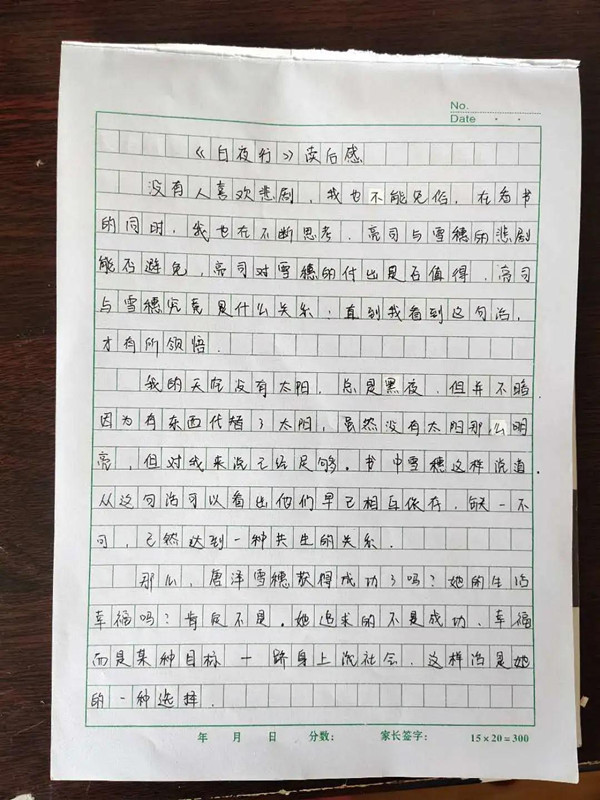 No.
Date . .
《白夜行》读后感
没有人喜欢悲剧，我也不能免俗，在看书
的同时，我也在不断思考，亮司与雪穗的悲剧
能否避免，亮司对雪穗的付出是否值得，亮司
与雪穗究竟是什么关系，直到我看到这句话，
才有所领悟．
我的天空没有太阳，总是黑夜，但并不暗
因为有东西代替了太阳，虽然没有太阳那么明
亮，但对我来说已经足够．书中雪穗这样说道．
从这句话可以看出他们早已相互依存，缺一不
可，已然达到一种共生的关系．
那么，唐泽雪穗获得成功了吗？她的生活
幸福吗？肯定不是．她追求的不是成功、幸福
而是某种目标一跻身上流社会．这样活是她
的一种选择．
年 月 日 分数： 家长签字： 15×20=300